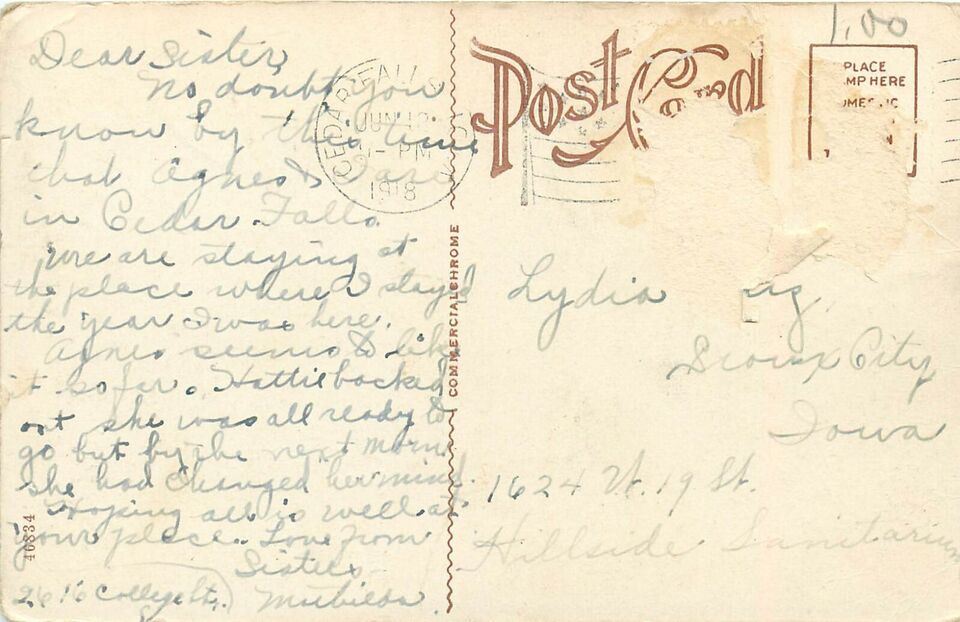 Dear Sister,
No doubt you
know by this time
that Agnes & I are
in Cedar Falls.
We are staying at
the place where I stayed
the year I was here.
Agnes seems to like
it so far. Hattie backed
out she was all ready to
go but by the next morn
she had changed her mind.
Hoping all is well at
your place. Love from
Sister
2616 College St.
CEDAR FALLS
JUN 12
PM
1918
46834
COMMERCIALCHROME
Post Card
1.00
PLACE
MP HERE
Lydia
Sioux City
Iowa
1624 W. 19 St.
Hillside Sanitarium